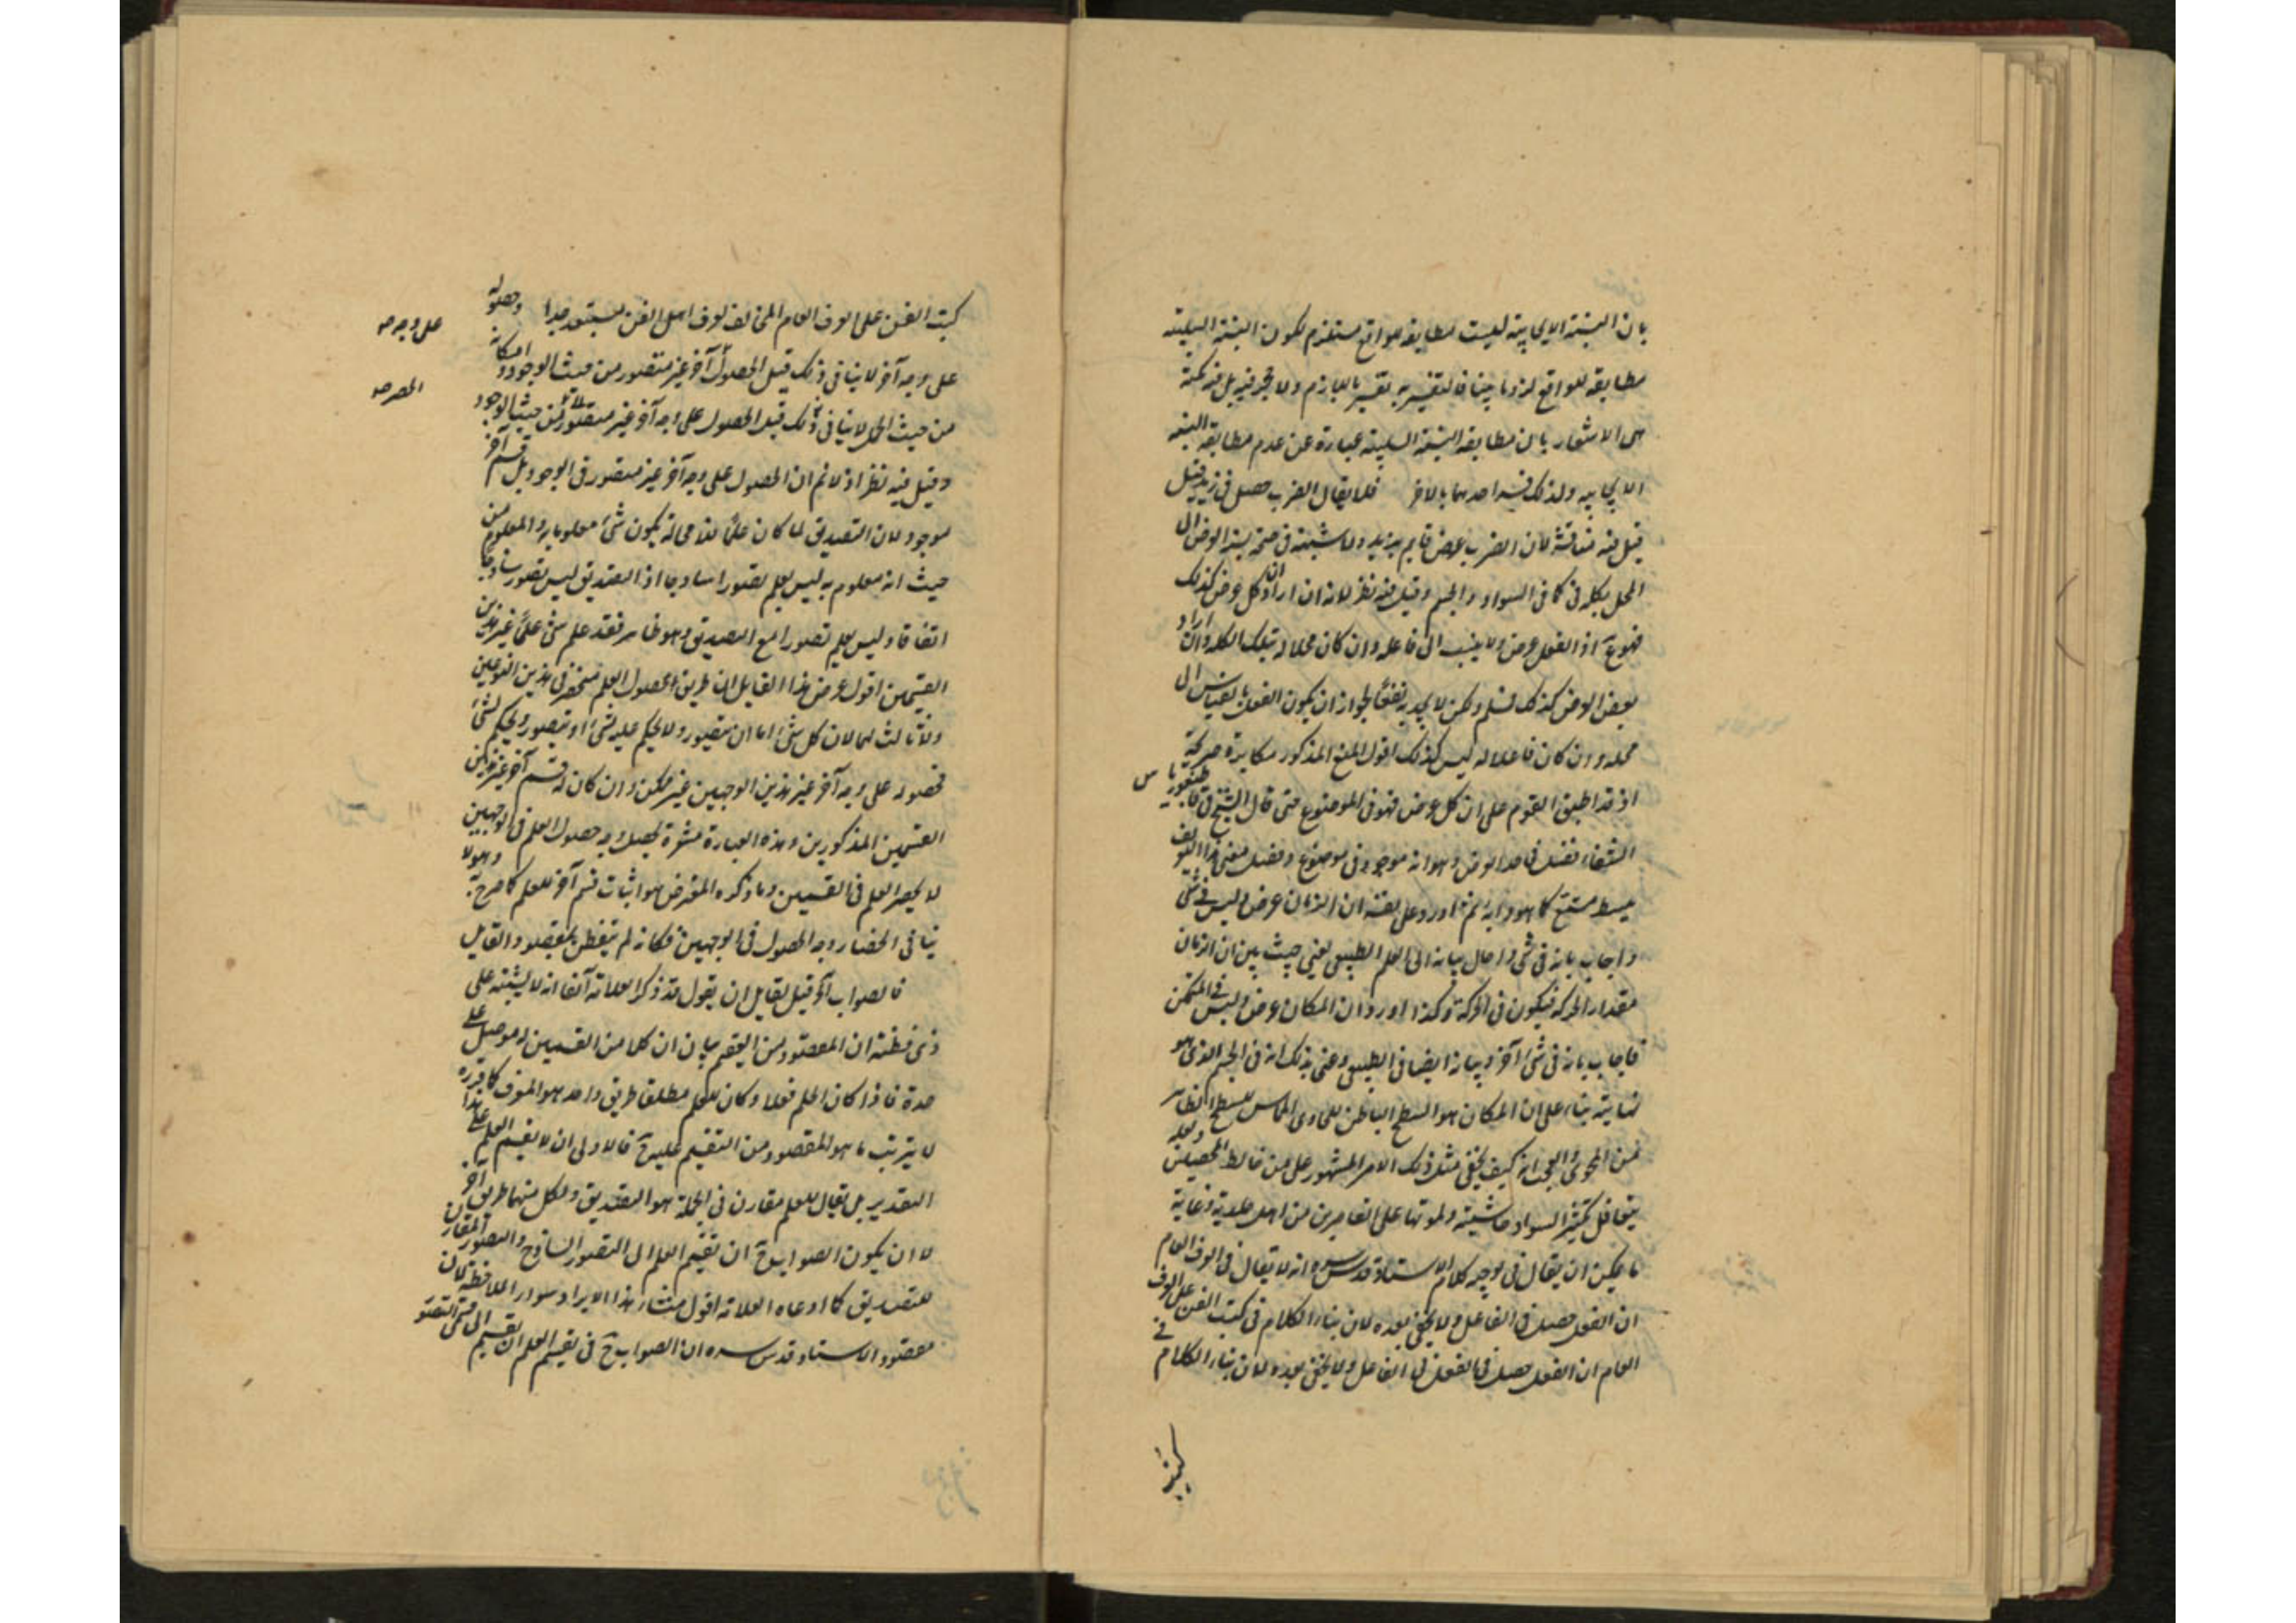 بان النسبة الايجابية ليست مطابقة للواقع مستلزم لكون النسبة السلبية
مطابقة للواقع لزوما بينا فالتفسير به تفسير باللازم ولا حجر فيه بل فيه نكتة
هى الاشعار بان مطابقة النسبة السلبية عبارة عن عدم مطابقة النسبة
الايجابية ولذلك فسر احدهما بالاخر فلا يقال الضرب حصل فى زيد قيل
قيل فيه مناقشة لان الضرب عرض قايم بزيد ولا شبهة فى صحة نسبة العرض الى
المحل بكلمة فى كما فى السواد والجسم وقيل فيه نظر لانه ان اراد ان كل عرض كذلك
فهو مم اذ الفعل عرض ولا ينسب الى فاعله وان كان محلا له بتلك الكلمة وان اراد ان
بعض العرض كذلك فمسلم ولكن لا يجديه نفعا لجواز ان يكون الفعل بالقياس الى
محله وان كان فاعلا له ليس كذلك اقول المنع المذكور مكابرة صريحة
اذ قد اطبق القوم على ان كل عرض فهو فى الموضوع حتى قال الشيخ فى قاطيغورياس
الشفاء فصل فى حد العرض وهو انه موجود فى موضوع وفصل معنى هذا التعريف
ببسط مشبع كما هو دابه ثم اورد على نفسه ان الزمان عرض وليس فى شئ
واجاب بانه فى شئ واحال بيانه الى العلم الطبيعى يعنى حيث بين ان الزمان
مقدار الحركة فيكون فى الحركة وكذا اورد ان المكان عرض وليس فى المتمكن
فاجاب بانه فى شئ آخر وبيانه ايضا فى الطبيعى وعنى بذلك انه فى الجسم الذى هو
نهايته بناء على ان المكان هو السطح الباطن للحاوى المماس للسطح الظاهر
من المحوى والعجب انه كيف يخفى مثل ذلك الامر المشهور على من خالط المحصلين ولعله
يتغافل تكثيرا لسواد حاشيته ولموتها على القاصرين من اهل جلدته وغاية
ما يمكن ان يقال فى توجيه كلام الاستاد قدس سره انه لا يقال فى العرف العام
ان الفعل حصل فى الفاعل ولا يخفى بعده لان بناء الكلام فى كتب الفن على العرف
العام ان الفعل حصل فى الفعل فى الفاعل ولا يخفى بعده لان بناء الكلام فى
كتب
كتب الفن على العرف العام المخالف لعرف اهل الفن مستبعد جدا وحصوله
على وجه آخر لا ينافى ذلك قيل الحصول آخر غير متصور من حيث الوجود وامكانه
من حيث الحمل لا ينافى ذلك قيل الحصول على وجه آخر غير متصور من حيث الوجود
وقيل فيه نظر اذ لا نم ان الحصول على وجه آخر غير متصور فى الوجود بل قسم آخر
موجود لان التصديق لما كان علما فلا محالة يكون شئ معلوما به والمعلوم من
حيث انه معلوم به ليس بعلم تصورا ساذجا اذ التصديق ليس تصور ساذجا
اتفاقا وليس بعلم تصورا مع التصديق وهو ظاهر فقد علم شئ علما غير هذين
القسمين اقول غرض هذا القايل ان طريق حصول العلم منحصر فى هذين النوعين
ولا ثالث لهما لان كل شئ اما ان يتصور ولا يحكم عليه بشئ او يتصور ويحكم بشئ
فحصوله على وجه آخر غير هذين الوجهين غير ممكن وان كان له قسم آخر غير هذين
القسمين المذكورين وهذه العبارة مشعرة بحصر وجه حصول العلم فى الوجهين
لا بحصر العلم فى القسمين وما ذكره المعترض هو اثبات قسم آخر للعلم كما صرح به وهو لا
ينافى انحصار وجه الحصول فى الوجهين فكانه لم يتفطن بمقصود القايل
فالصواب آه قيل لقايل ان يقول قد ذكر العلامة آنفا انه لا يشتبه على
ذى فطنة ان المقصود من التقسيم بيان ان كلا من القسمين له موصل على
حدة فاذا كان الحكم فعلا وكان للعلم مطلقا طريق واحد هو المعرف كما قرره
لا يترتب ما هو المقصود من التقسيم عليه ح فالاولى ان لا يقسم العلم على هذا
التقدير بل يقال للعلم مقارن فى الجملة هو التصديق ولكل منهما طريق آخر
لا ان يكون الصواب ح ان تقسيم العلم الى التصور الساذج والتصور المقارن
للتصديق كما ادعاه العلامة اقول منشاء هذا الايراد سوء الملاحظة لان
مقصود الاستاد قدس سره ان الصواب ح فى تقسيم العلم ان يقسم الى قسمى التصور
على وجه صح
الحصر صح